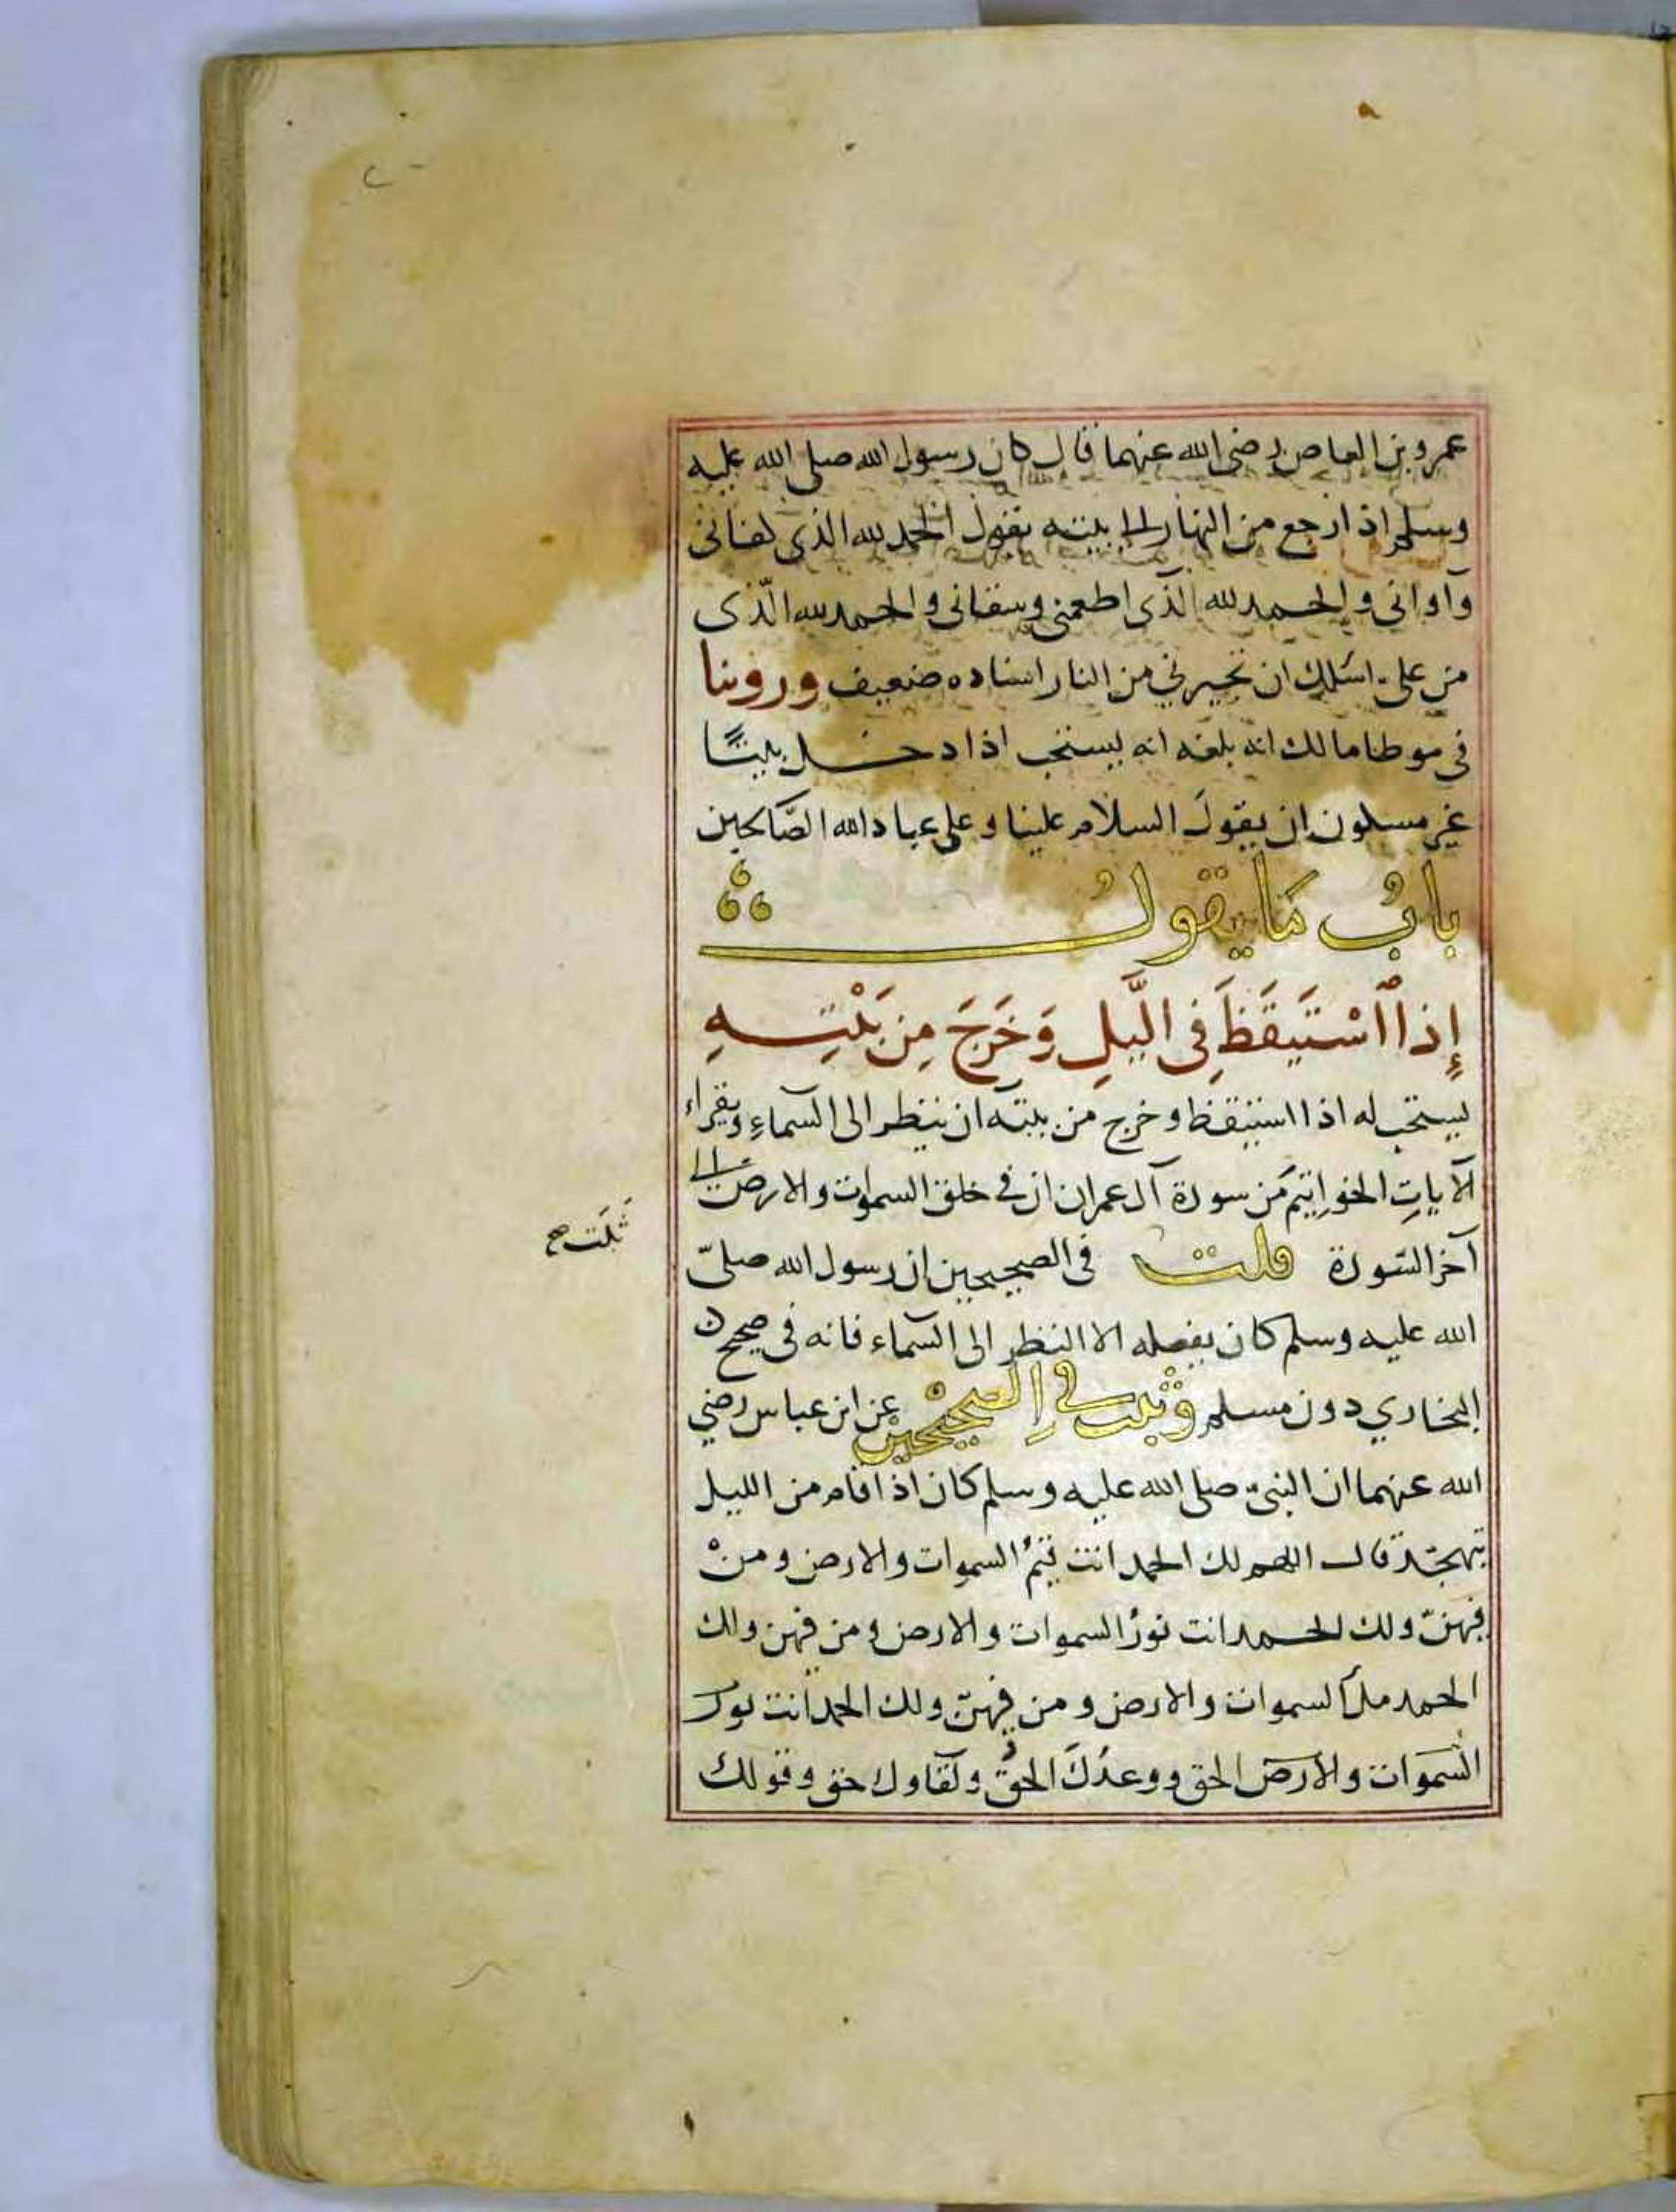 عمرو بن العاص رضى الله عنهما قال كان رسول الله صلى الله عليه
وسلم اذا رجع من النهار الى بيته يقول الحمد لله الذى كفانى
وآوانى والحمد لله الذى اطعمنى وسقانى والحمد لله الذى
من على اسئلك ان تجيرنى من النار اسناده ضعيف وروينا
فى موطا مالك انه بلغه انه يستحب اذا دخل بيتًا
غير مسكون ان يقول السلام علينا وعلى عباد الله الصّالحين
بابُ مَا يقولُ
إِذا اسْتَيقَظَ فِى الَّيلِ وَخَرَجَ مِن بَيْتِهِ
يستحب له اذا استيقظ وخرج من بيته ان ينظر الى السماءِ ويقراء
الآياتِ الخواتِيم من سورة آل عمران ان فى خلق السموات والارض الى
آخر السّورة قلت فى الصحيحين ان رسول الله صلىّ
ثبَت صح
الله عليه وسلم كان يفعله الا النظر الى السماء فانه فى صحيح
البخاري دون مسلم وثبت فى الصحيحين عن ابن عباس رضي
الله عنهما ان النبىّ صلى الله عليه وسلم كان اذا قام من الليل
يتهجّد قال اللهم لك الحمد انت قيّمُ السموات والارض ومنْ
فيهنّ ولك الحمد انت نورُ السموات والارض ومن فيهن ولك
الحمد ملك السموات والارض ومن فيهنّ ولك الحمد انت نور
السّموات والارض الحق ووعدُكَ الحقُّ ولقاوك حق وقولك